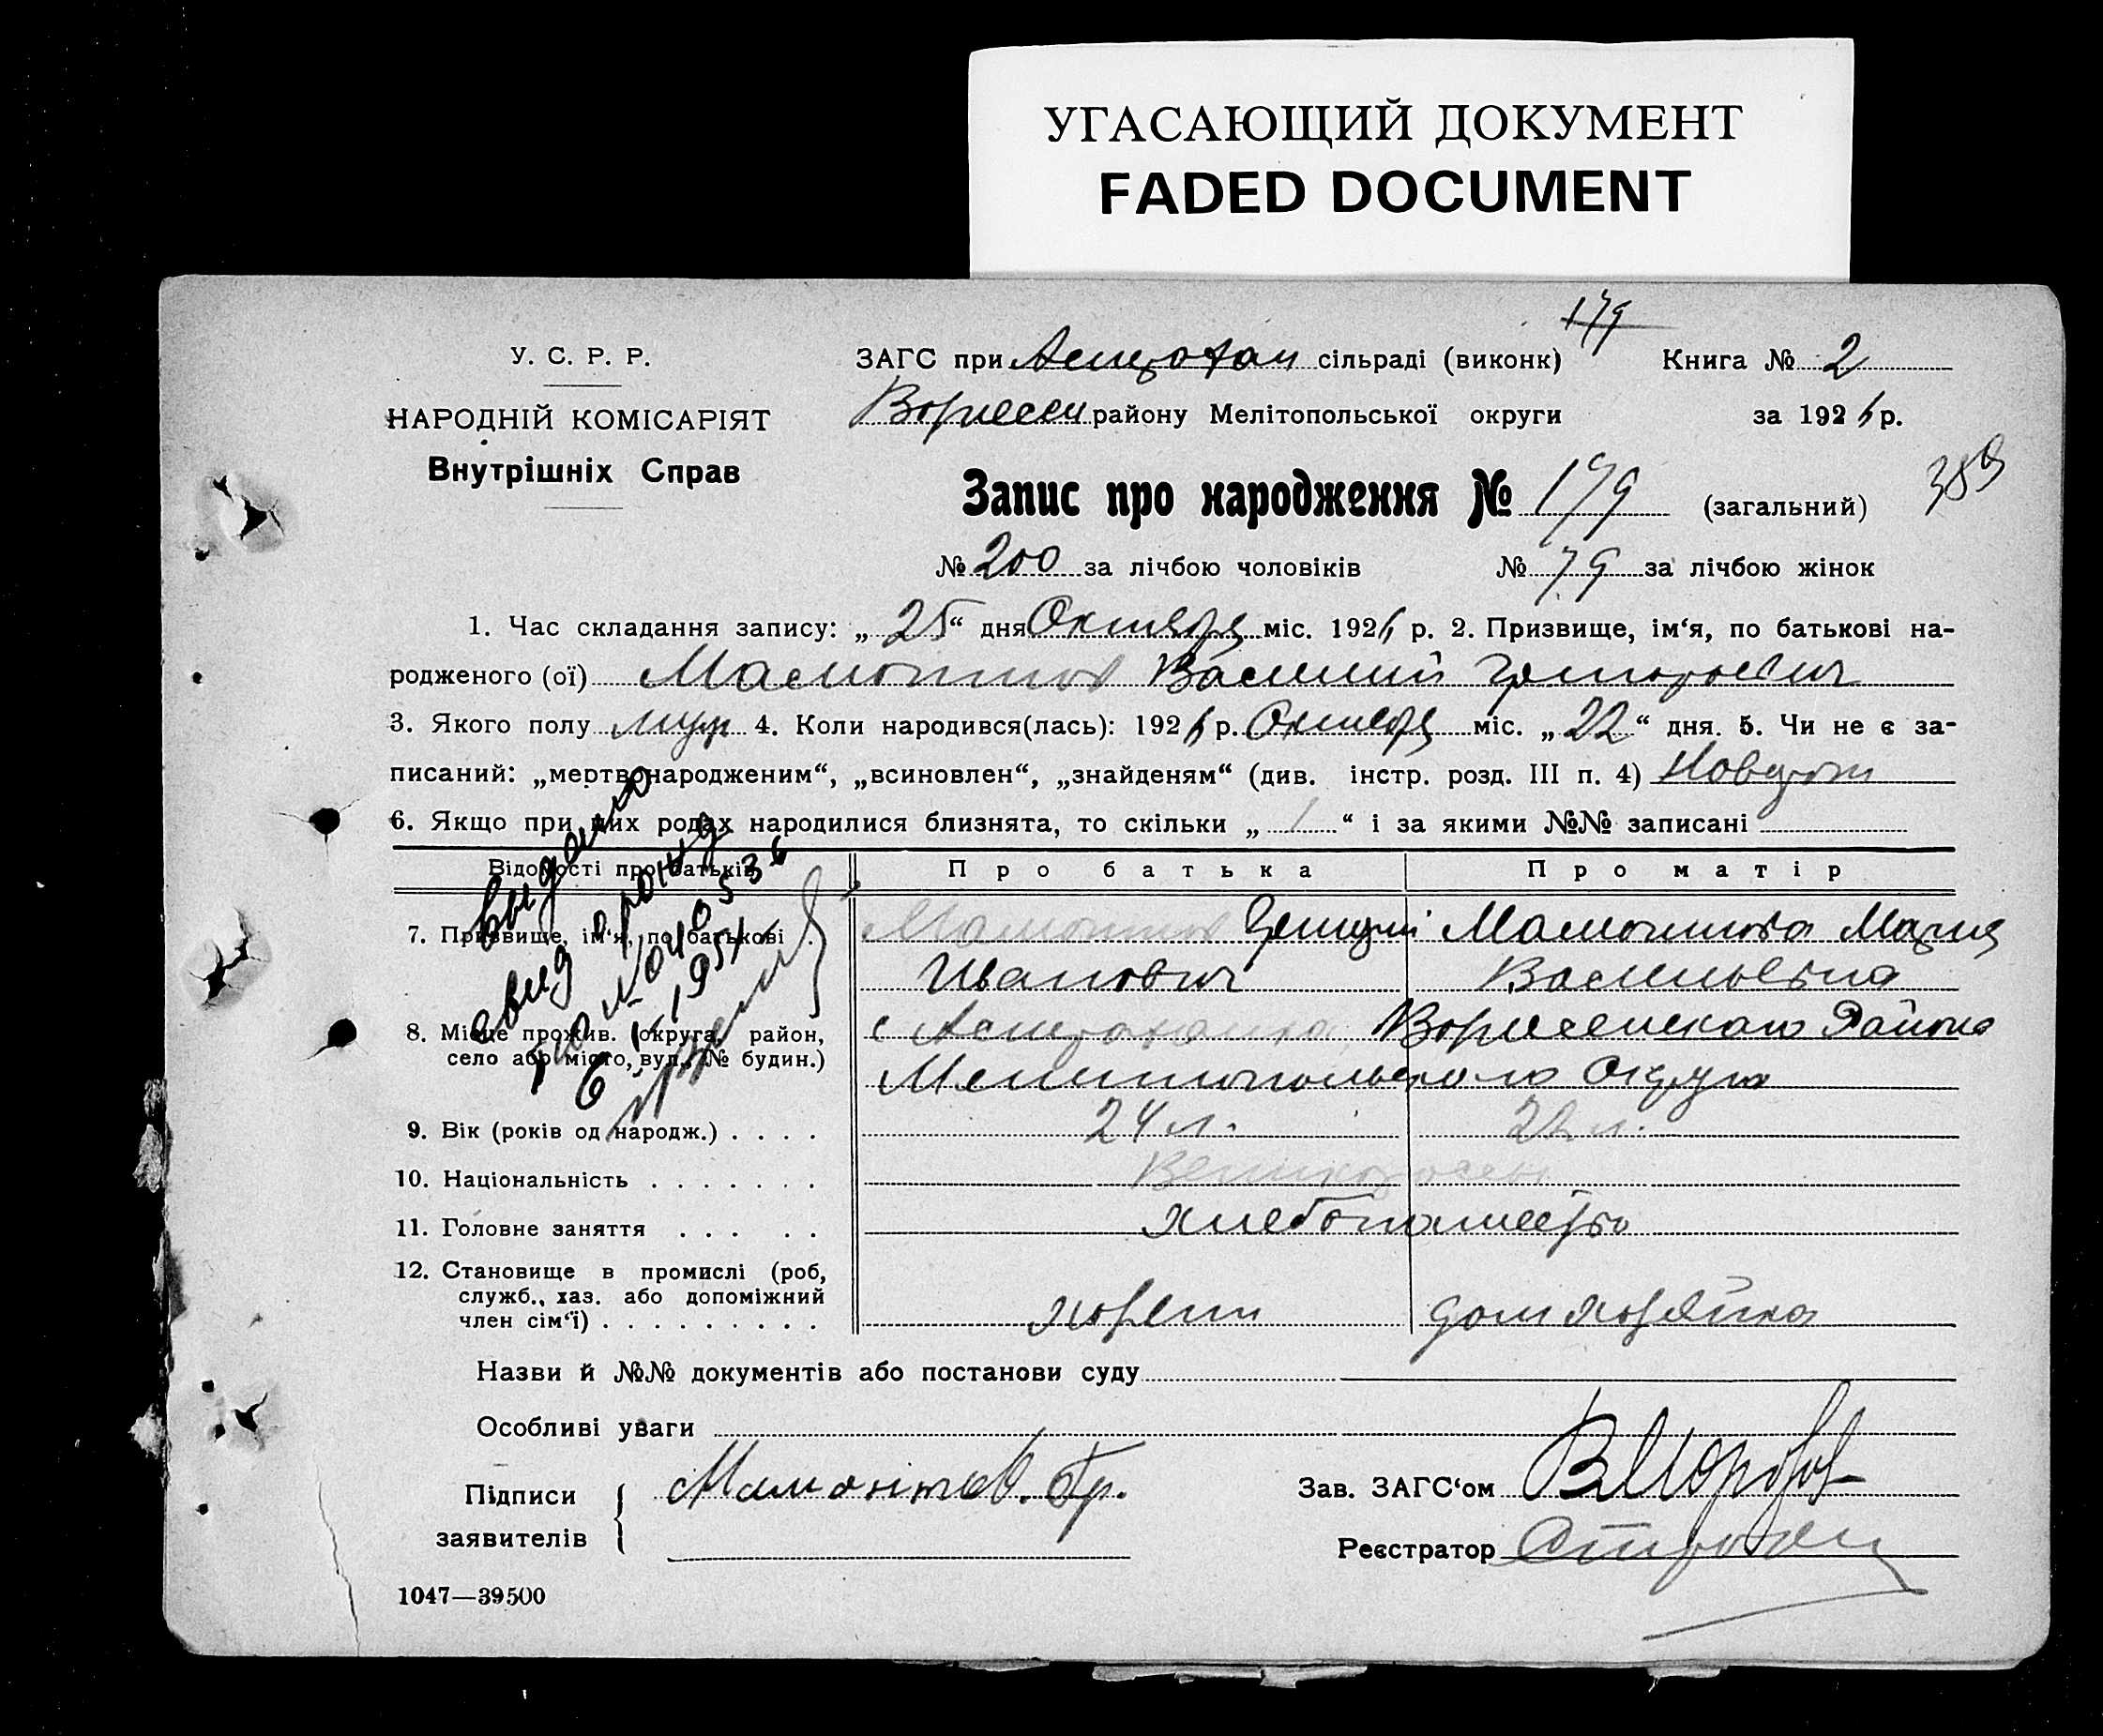 УГАСАЮЩИЙ ДОКУМЕНТ
FADED DOCUMENT
179
У. С. Р. Р.
ЗАГС при Астрахан сільраді (виконк)
Книга № 2
НАРОДНІЙ КОМІСАРІЯТ
районy Мелітопольської округи
за 1926 р.
Внутрішніх Справ
Запис про народження № 179 (загальний)
389
№ 200 за лічбою чоловіків № 79 за лічбою жінок
1. Час складання запису: „25“ дня Октября міс. 1926 р. 2. Призвище, ім‘я, по батькові на-
родженого (ої) Мамонтов Василий Григорьевич
3. Якого полу муж 4. Коли народився(лась): 1926 р. Октября міс. „22“ дня. 5. Чи не є за-
писаний: „мертвонародженим“, „всиновлен“, „знайденям“ (див. інстр. розд. III п. 4)
6. Якщо при цих родах народилися близнята, то скільки „1“ і за якими №№ записані
Відомості про батьків
Про батька
Про матір
7. Призвище, ім‘я, по батькові
Мамонтов Григорий
Мамонтова Мария
Иванович
Васильевна
8. Місце прожив. (округа, район,
село або місто, вул., № будин.)
с Астраханка Района
Мелитопольского Округа
9. Вік (років од народж.)
24 л.
22 л.
10. Національність
Великоросы
11. Головне заняття
хлебопашество
12. Становище в промислі (роб,
служб., хаз. або допоміжний
член сім‘ї)
хозяин
дом хозяйка
выдано
свид о рожд
№ 040536
6-I-1951
Назви й №№ документів або постанови суду
Особливі уваги
Підписи
заявителів
Мамонтов. Гр.
Зав. ЗАГС‘ом
Реєстратор
1047—39500